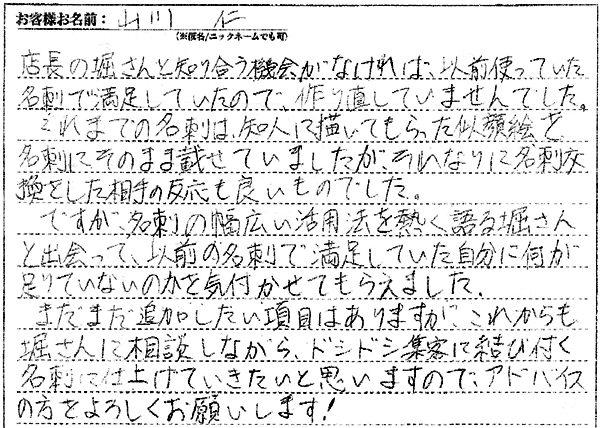 お客様お名前： 山川 仁
（※匿名／ニックネームでも可）
店長の堀さんと知り合う機会がなければ、以前使っていた
名刺で満足していたので、作り直していませんでした。
それまでの名刺は、知人に描いてもらった似顔絵を
名刺にそのまま載せていましたが、それなりに名刺交
換をした相手の反応も良いものでした。
ですが、名刺の幅広い活用法を熱く語る堀さん
と出会って、以前の名刺で満足していた自分に何が
足りていないのかを気付かせてもらえました。
まだまだ追加したい項目はありますが、これからも
堀さんに相談しながら、ドシドシ集客に結び付く
名刺に仕上げていきたいと思いますので、アドバイス
の方をよろしくお願いします！